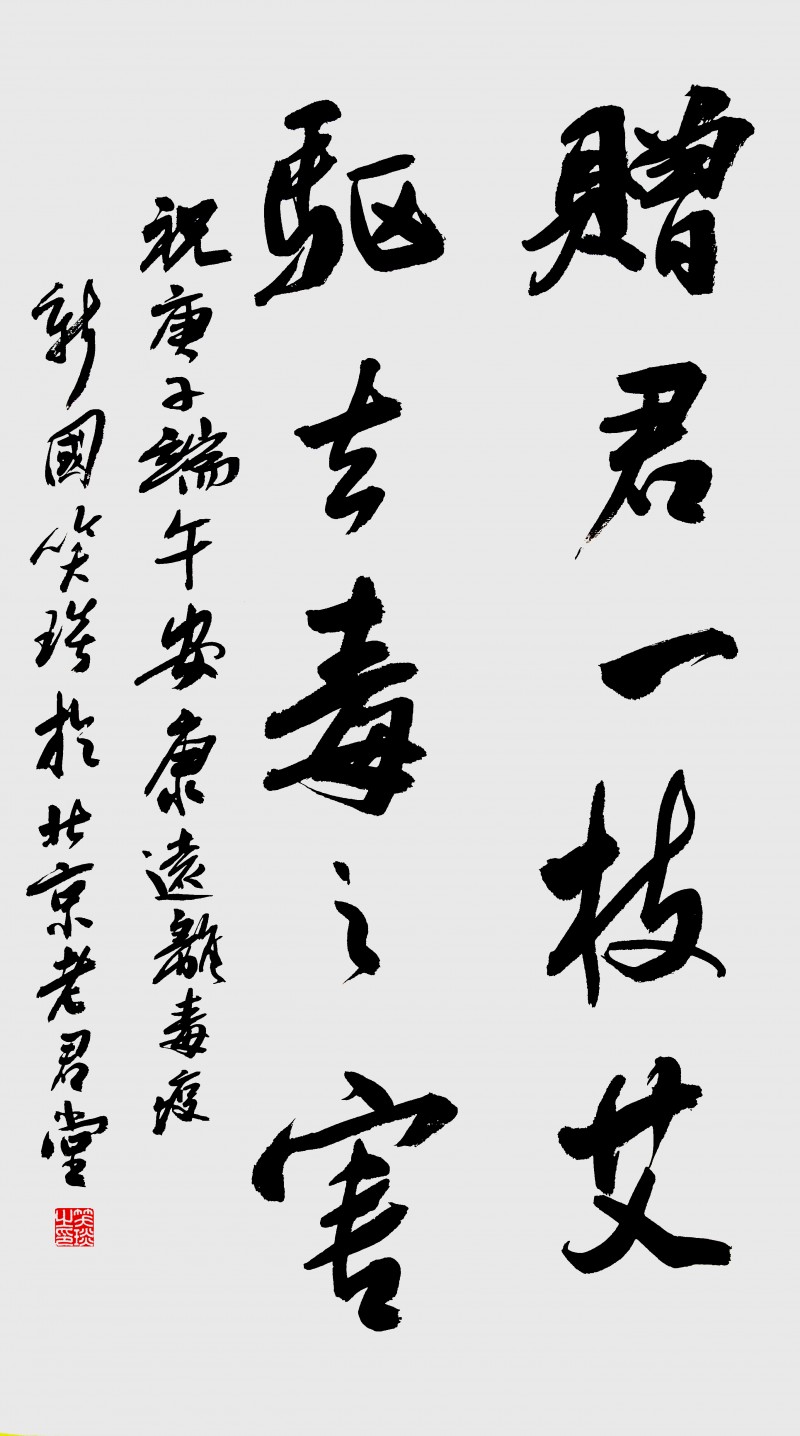 贈君一枝艾
驅去毒之害
祝庚子端午安康遠離毒疫
新國笑琰於北京老君堂
笑琰之印